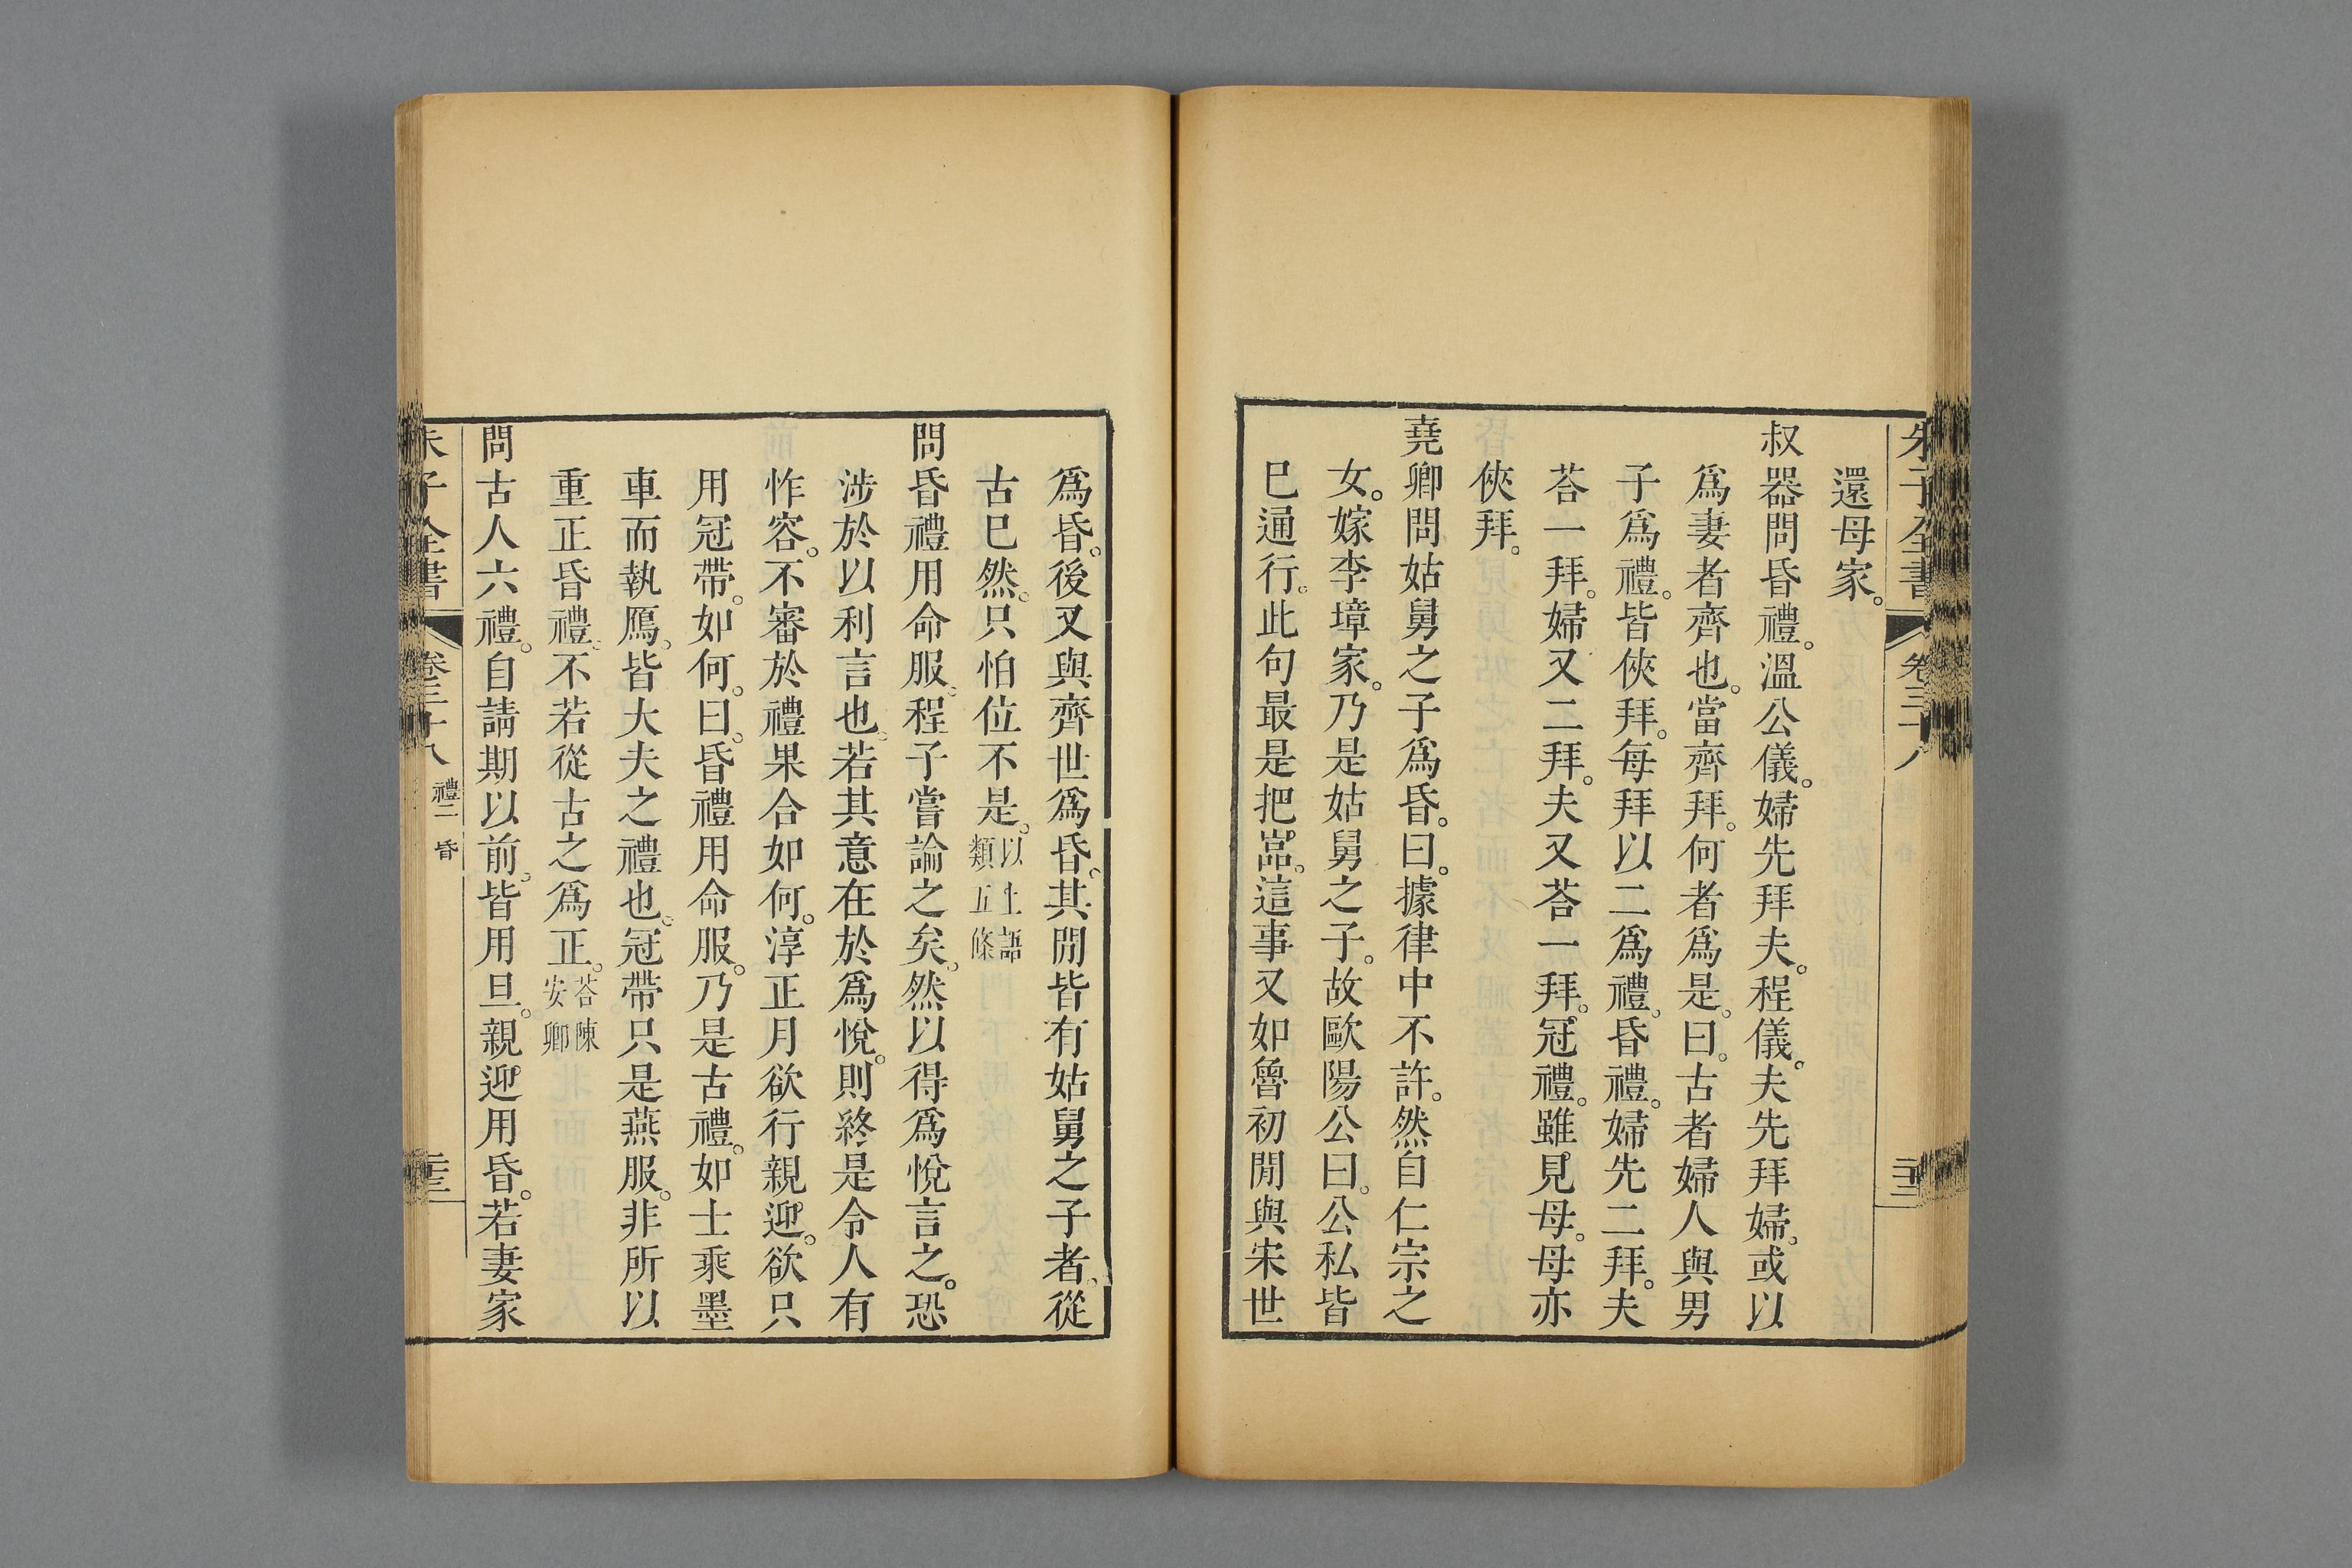 朱子全書 卷三十八
還母家。
叔器問昏禮。溫公儀。婦先拜夫。程儀。夫先拜婦。或以
爲妻者齊也。當齊拜。何者爲是。曰。古者婦人與男
子爲禮。皆俠拜。每拜以二爲禮。昏禮。婦先二拜。夫
荅一拜。婦又二拜。夫又荅一拜。冠禮。雖見母。母亦
俠拜。
堯卿問姑舅之子爲昏。曰。據律中不許。然自仁宗之
女。嫁李璋家。乃是姑舅之子。故歐陽公曰。公私皆
巳通行。此句最是把嵓。這事又如魯初閒與宋世
爲昏。後又與齊世爲昏。其閒皆有姑舅之子者。從
古巳然。只怕位不是。以上語類五條
問昏禮用命服。程子嘗論之矣。然以得爲悅言之。恐
涉於以利言也。若其意在於爲悅。則終是令人有
怍容。不審於禮果合如何。淳正月欲行親迎。欲只
用冠帶。如何。曰。昏禮用命服。乃是古禮。如士乘墨
車而執鴈。皆大夫之禮也。冠帶只是燕服。非所以
重正昏禮。不若從古之爲正。荅陳安卿
問古人六禮。自請期以前。皆用旦。親迎用昏。若妻家
朱子全書 卷三十八 禮二 昏